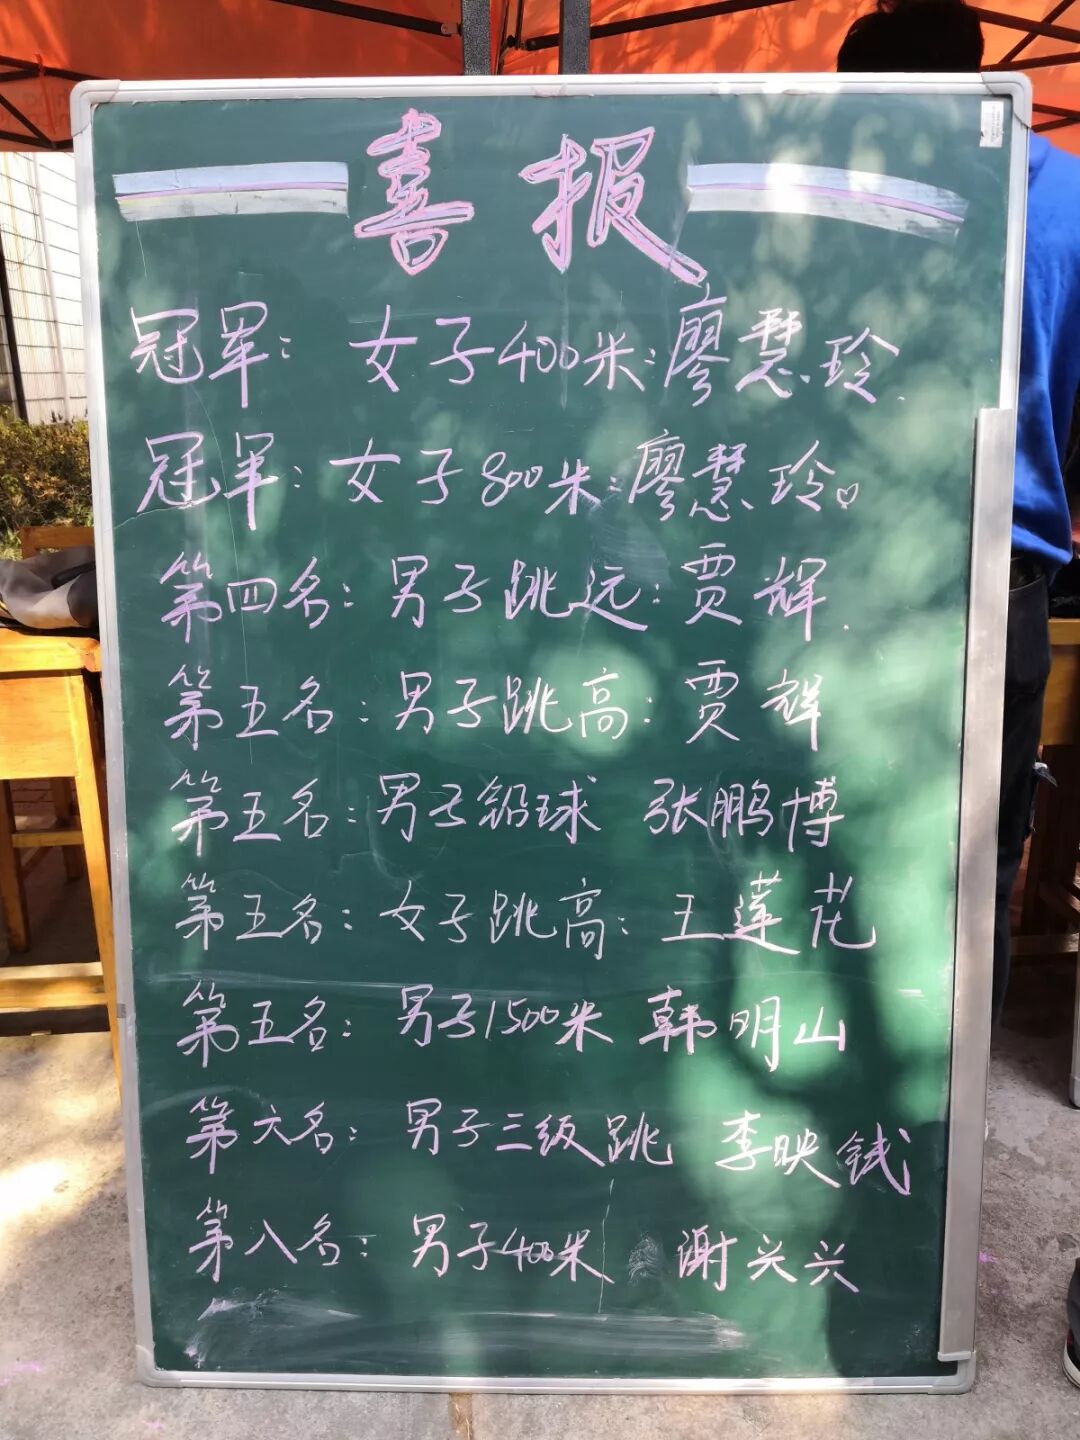 喜报
冠军: 女子400米:廖慧玲.
冠军: 女子800米:廖慧玲。
第四名: 男子跳远: 贾辉.
第五名: 男子跳高: 贾辉
第五名: 男子铅球 张鹏博
第五名: 女子跳高: 王莲花
第五名: 男子1500米 韩明山
第六名: 男子三级跳 李映铖
第八名: 男子400米 谢兴